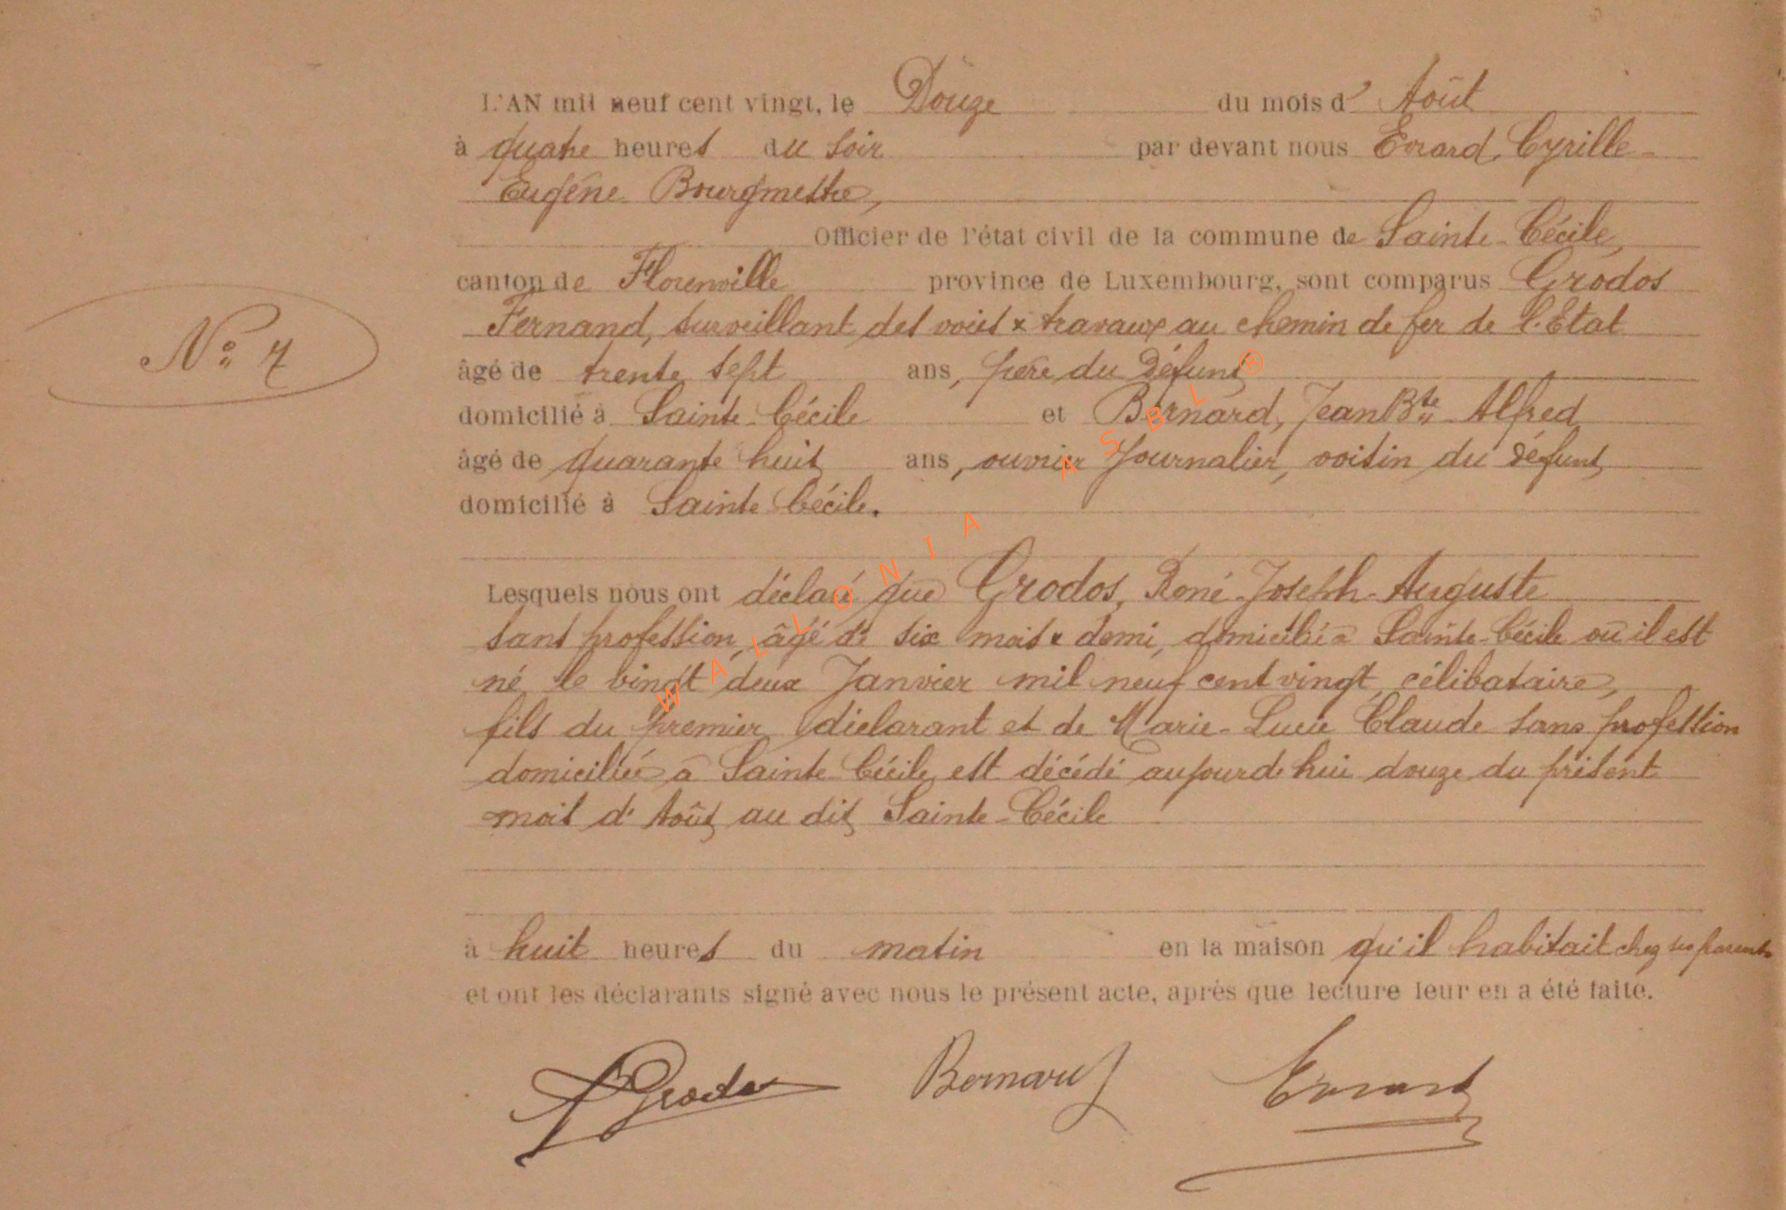 L'AN mil neuf cent vingt, le Douze du mois d' Août
à quatre heures du soir par devant nous Evrard, Cyrille
Eugéne Bourgmestre,
Officier de l'état civil de la commune de Sainte-Cécile,
canton de Florenville province de Luxembourg, sont comparus Grodos
Fernand, surveillant des voies & travaux au chemin de fer de l'Etat
N° 7
âgé de trente sept ans, père du défunt
domicilié à Sainte-Cécile et Bernard, Jean Bte Alfred
âgé de quarante huit ans, ouvrier journalier, voisin du défunt
domicilié à Sainte Cécile.
Lesquels nous ont déclaré que Grodos, René-Joseph-Auguste
sans profession, âgé de six mois & demi, domicilié à Sainte-Cécile où il est
né le vingt deux Janvier mil neuf cent vingt, célibataire,
fils du premier déclarant et de Marie-Lucie Claude sans profession
domiciliée à Sainte-Cécile, est décédé aujourd'hui douze du présent
mois d'Août au dit Sainte-Cécile
à huit heures du matin en la maison qu'il habitait chez ses parents
et ont les déclarants signé avec nous le présent acte, après que lecture leur en a été faite.
Grodos Bernard Evrard
WALLONIA ASBL ®